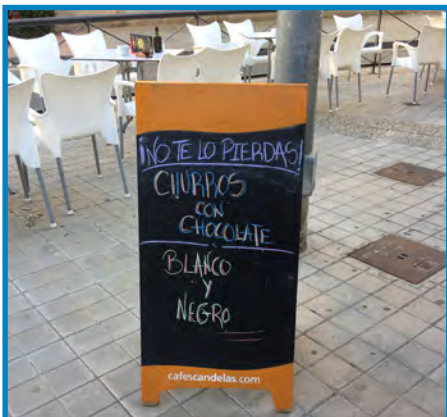 ¡NO TE LO PIERDAS!
CHURROS
CON
CHOCOLATE
BLANCO
Y
NEGRO
cafescandelas.com